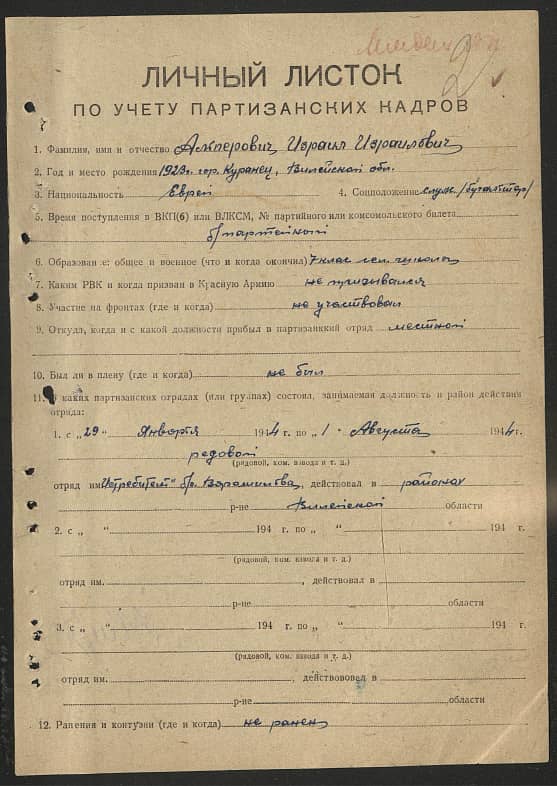 ЛИЧНЫЙ ЛИСТОК
ПО УЧЕТУ ПАРТИЗАНСКИХ КАДРОВ
1. Фамилия, имя и отчество Аскперович Израил Израилович
2. Год и место рождения 1923г. гор. Куранец, Вилейской обл.
3. Национальность Еврей 4. Соцположение служ /бухгалтер/
5. Время поступления в ВКП(б) или ВЛКСМ, № партийного или комсомольского билета
б/партейной
6. Образование: общее и военное (что и когда окончил) 7 клас
7. Каким РВК и когда призван в Красную Армию не призывался
8. Участие на фронтах (где и когда) не участвовал
9. Откуда, когда и с какой должности прибыл в партизанский отряд местной
10. Был ли в плену (где и когда) не был
11. В каких партизанских отрядах (или группах) состоял, занимаемая должность и район действия
отряда:
1. с „29" Января 1944 г. по „1. Августа 1944 г.
редовой
(рядовой, ком. взвода и т. д.)
отряд им. Истребитель" бр. Ворошилова, действовал в районах
р-не Вилейской области
2. с „ “ 194 г. по „ “ 194 г.
(рядовой, ком. взвода и т. д.)
отряд им. , действовал в
р-не области
3. с „ “ 194 г. по „ “ 194 г.
(рядовой, ком. взвода и т. д.)
отряд им. , действововал в
р-не области
12. Ранения и контузии (где и когда) не ранен